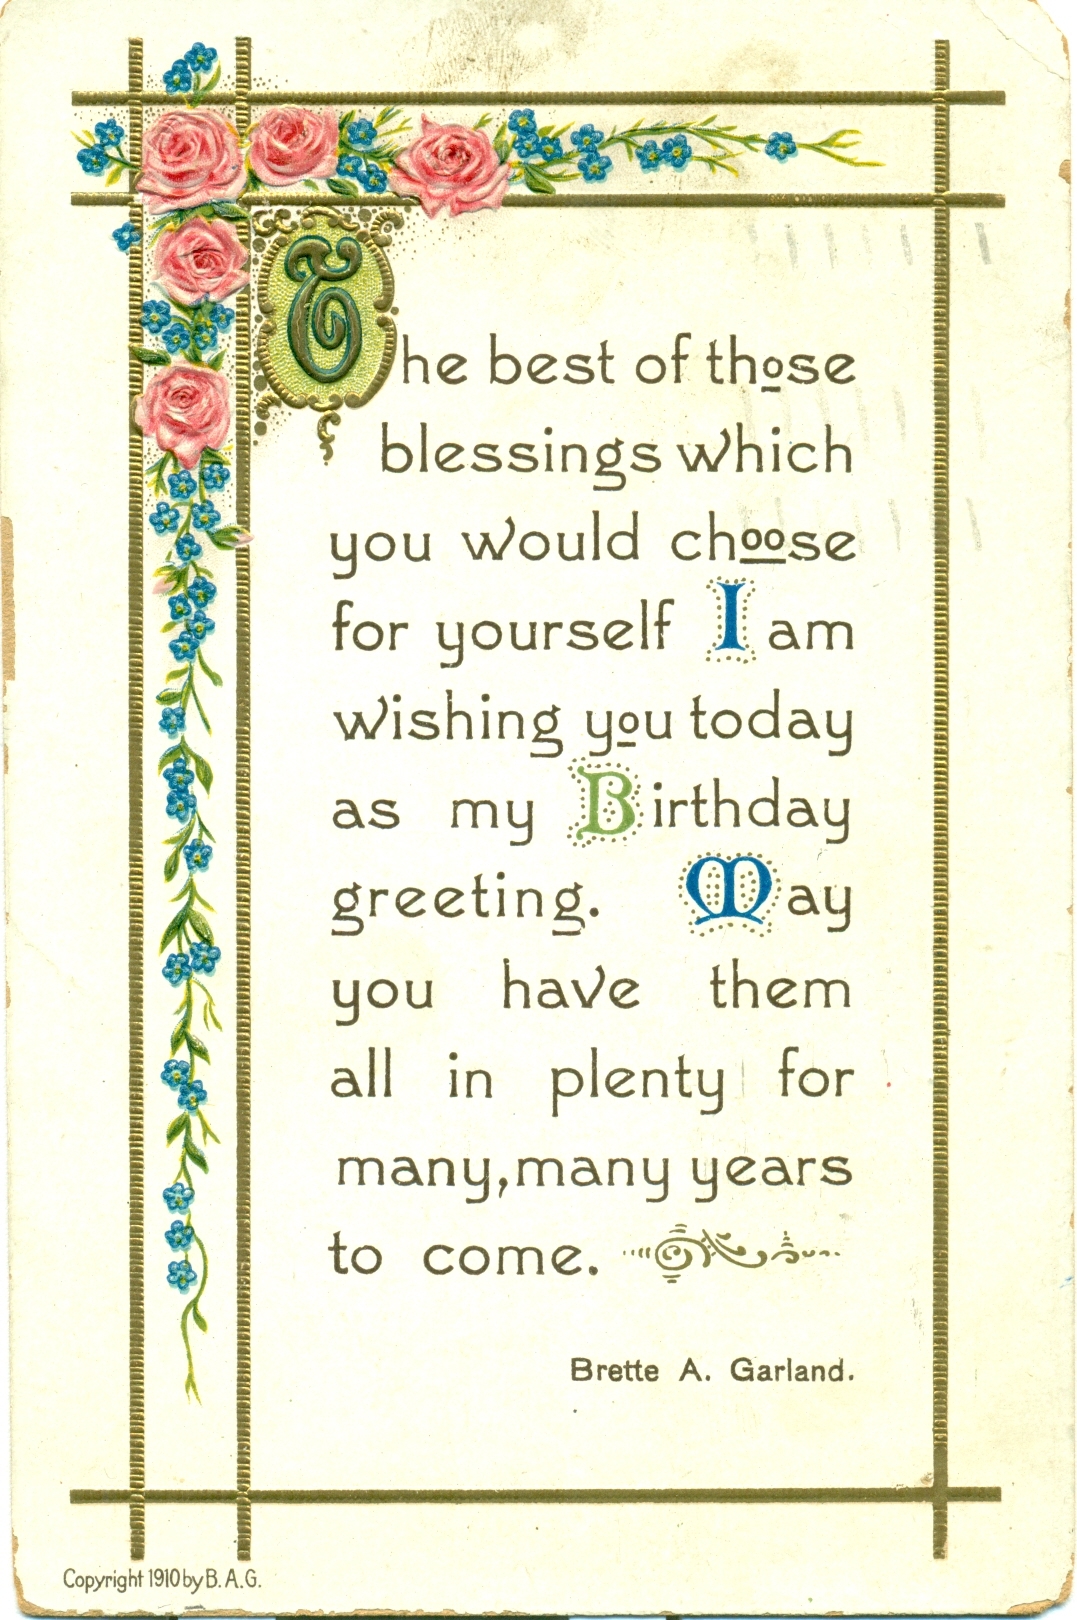 The best of those
blessings which
you would choose
for yourself I am
wishing you today
as my Birthday
greeting. May
you have them
all in plenty for
many, many years
to come.
Brette A. Garland.
Copyright 1910 by B. A. G.